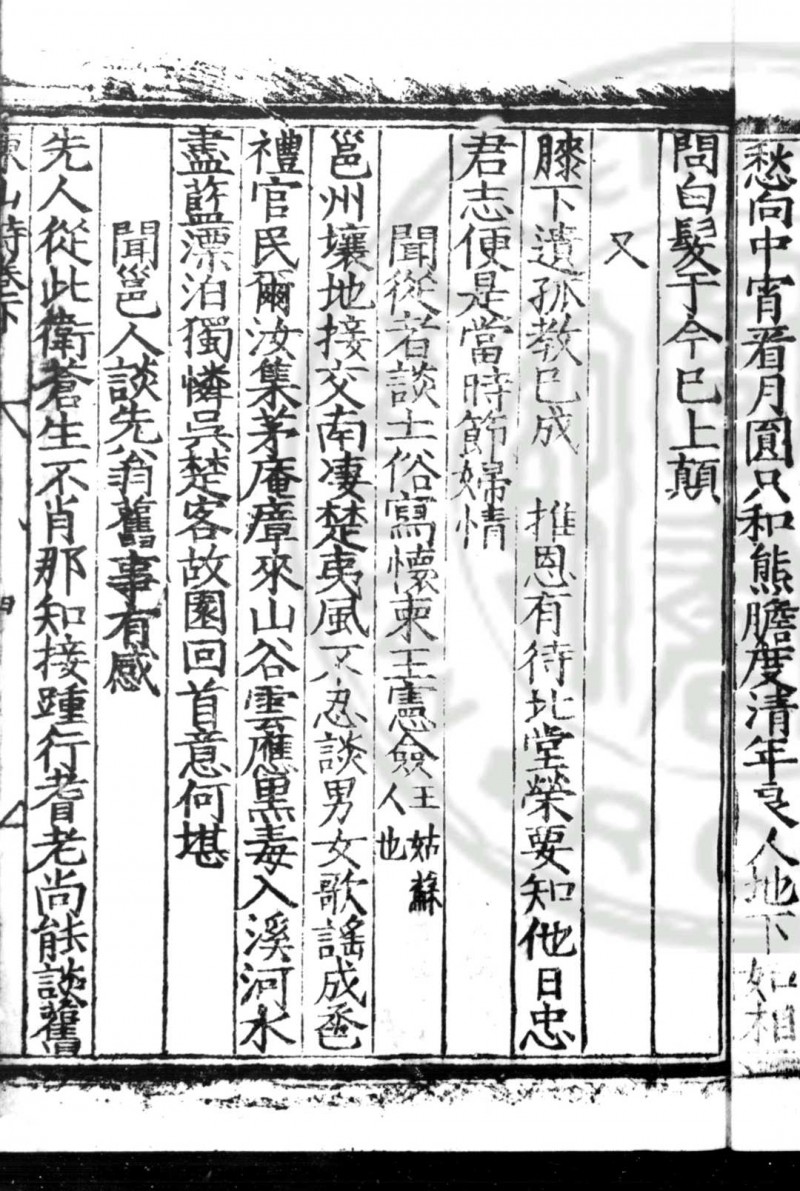 愁向中宵看月圓只和熊膽度清年良人地下如相
問白髮于今巳上顛
又
膝下遺孤教巳成　推恩有待北堂榮要知他日忠
君志便是當時節婦情
聞從者談土俗寫懷柬王憲僉王姑蘇人也
邕州壤地接交南凄楚夷風不忍談男女歌謠成巹
禮官民爾汝集茅庵瘴來山谷雲應黑毒入溪河水
盡藍漂泊獨憐吳楚客故園回首意何堪
聞邕人談先翁舊事有感
先人從此衛蒼生不肖那知接踵行耆老尚能談舊
東山詩卷下